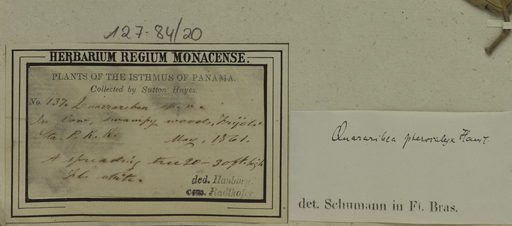 127-84/20
HERBARIUM REGIUM MONACENSE.
PLANTS OF THE ISTHMUS OF PANAMA.
Collected by Sutton Hayes.
No. 137.
In low, swampy woods, Frijole
Sta. P. R. R. May, 1861.
A spreading tree 20-30 ft. high
Fls. white.
ded. Hanbury.
com. Radlkofer
Quararibea pterocalyx Hemsl.
det. Schumann in Fl. Bras.